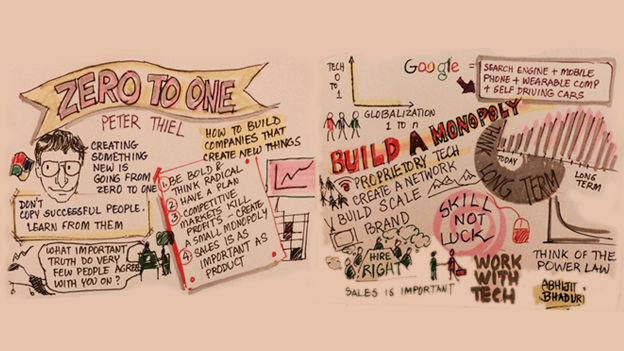 ZERO TO ONE
PETER THIEL
CREATING
SOMETHING
NEW IS
GOING FROM
ZERO TO ONE
HOW TO BUILD
COMPANIES THAT
CREATE NEW THINGS
DON'T
COPY SUCCESSFUL PEOPLE.
LEARN FROM THEM
WHAT IMPORTANT
TRUTH DO VERY
FEW PEOPLE AGREE
WITH YOU ON?
1. BE BOLD &
THINK RADICAL
2 HAVE A PLAN
3. COMPETITIVE
MARKETS KILL
PROFITS - CREATE
A SMALL MONOPOLY
4 SALES IS AS
IMPORTANT AS
PRODUCT
TECH
0
TO
1
GLOBALIZATION
1 TO n
Google =
SEARCH ENGINE + MOBILE
PHONE + WEARABLE COMP
+ SELF DRIVING CARS
BUILD A MONOPOLY
PROPRIETORY TECH
CREATE A NETWORK
BUILD SCALE
BRAND
THINK LONG TERM
TODAY
LONG
TERM
SKILL
NOT
LUCK
HIRE
RIGHT
SALES IS IMPORTANT
WORK
WITH
TECH
THINK OF THE
POWER LAW
ABHIJIT
BHADURI